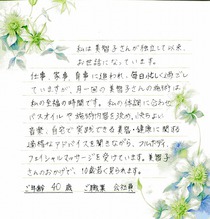 私は美智子さんが独立して以来、
お世話になっています。
仕事、家事、育事に追われ、毎日忙しく過ごし
ていますが、月一回の美智子さんの施術は
私の至福の時間です。私の体調に合せ
バスオイルや施術内容を決め、心地よい
音楽、自宅で実践できる美容・健康に関する
適格なアドバイスを聞きながら、フルボディ、
フェイシャルマッサージを受けています。美智子
さんのおかげで、10歳若く見られます。
ご年齢 40 歳 ご職業 会社員